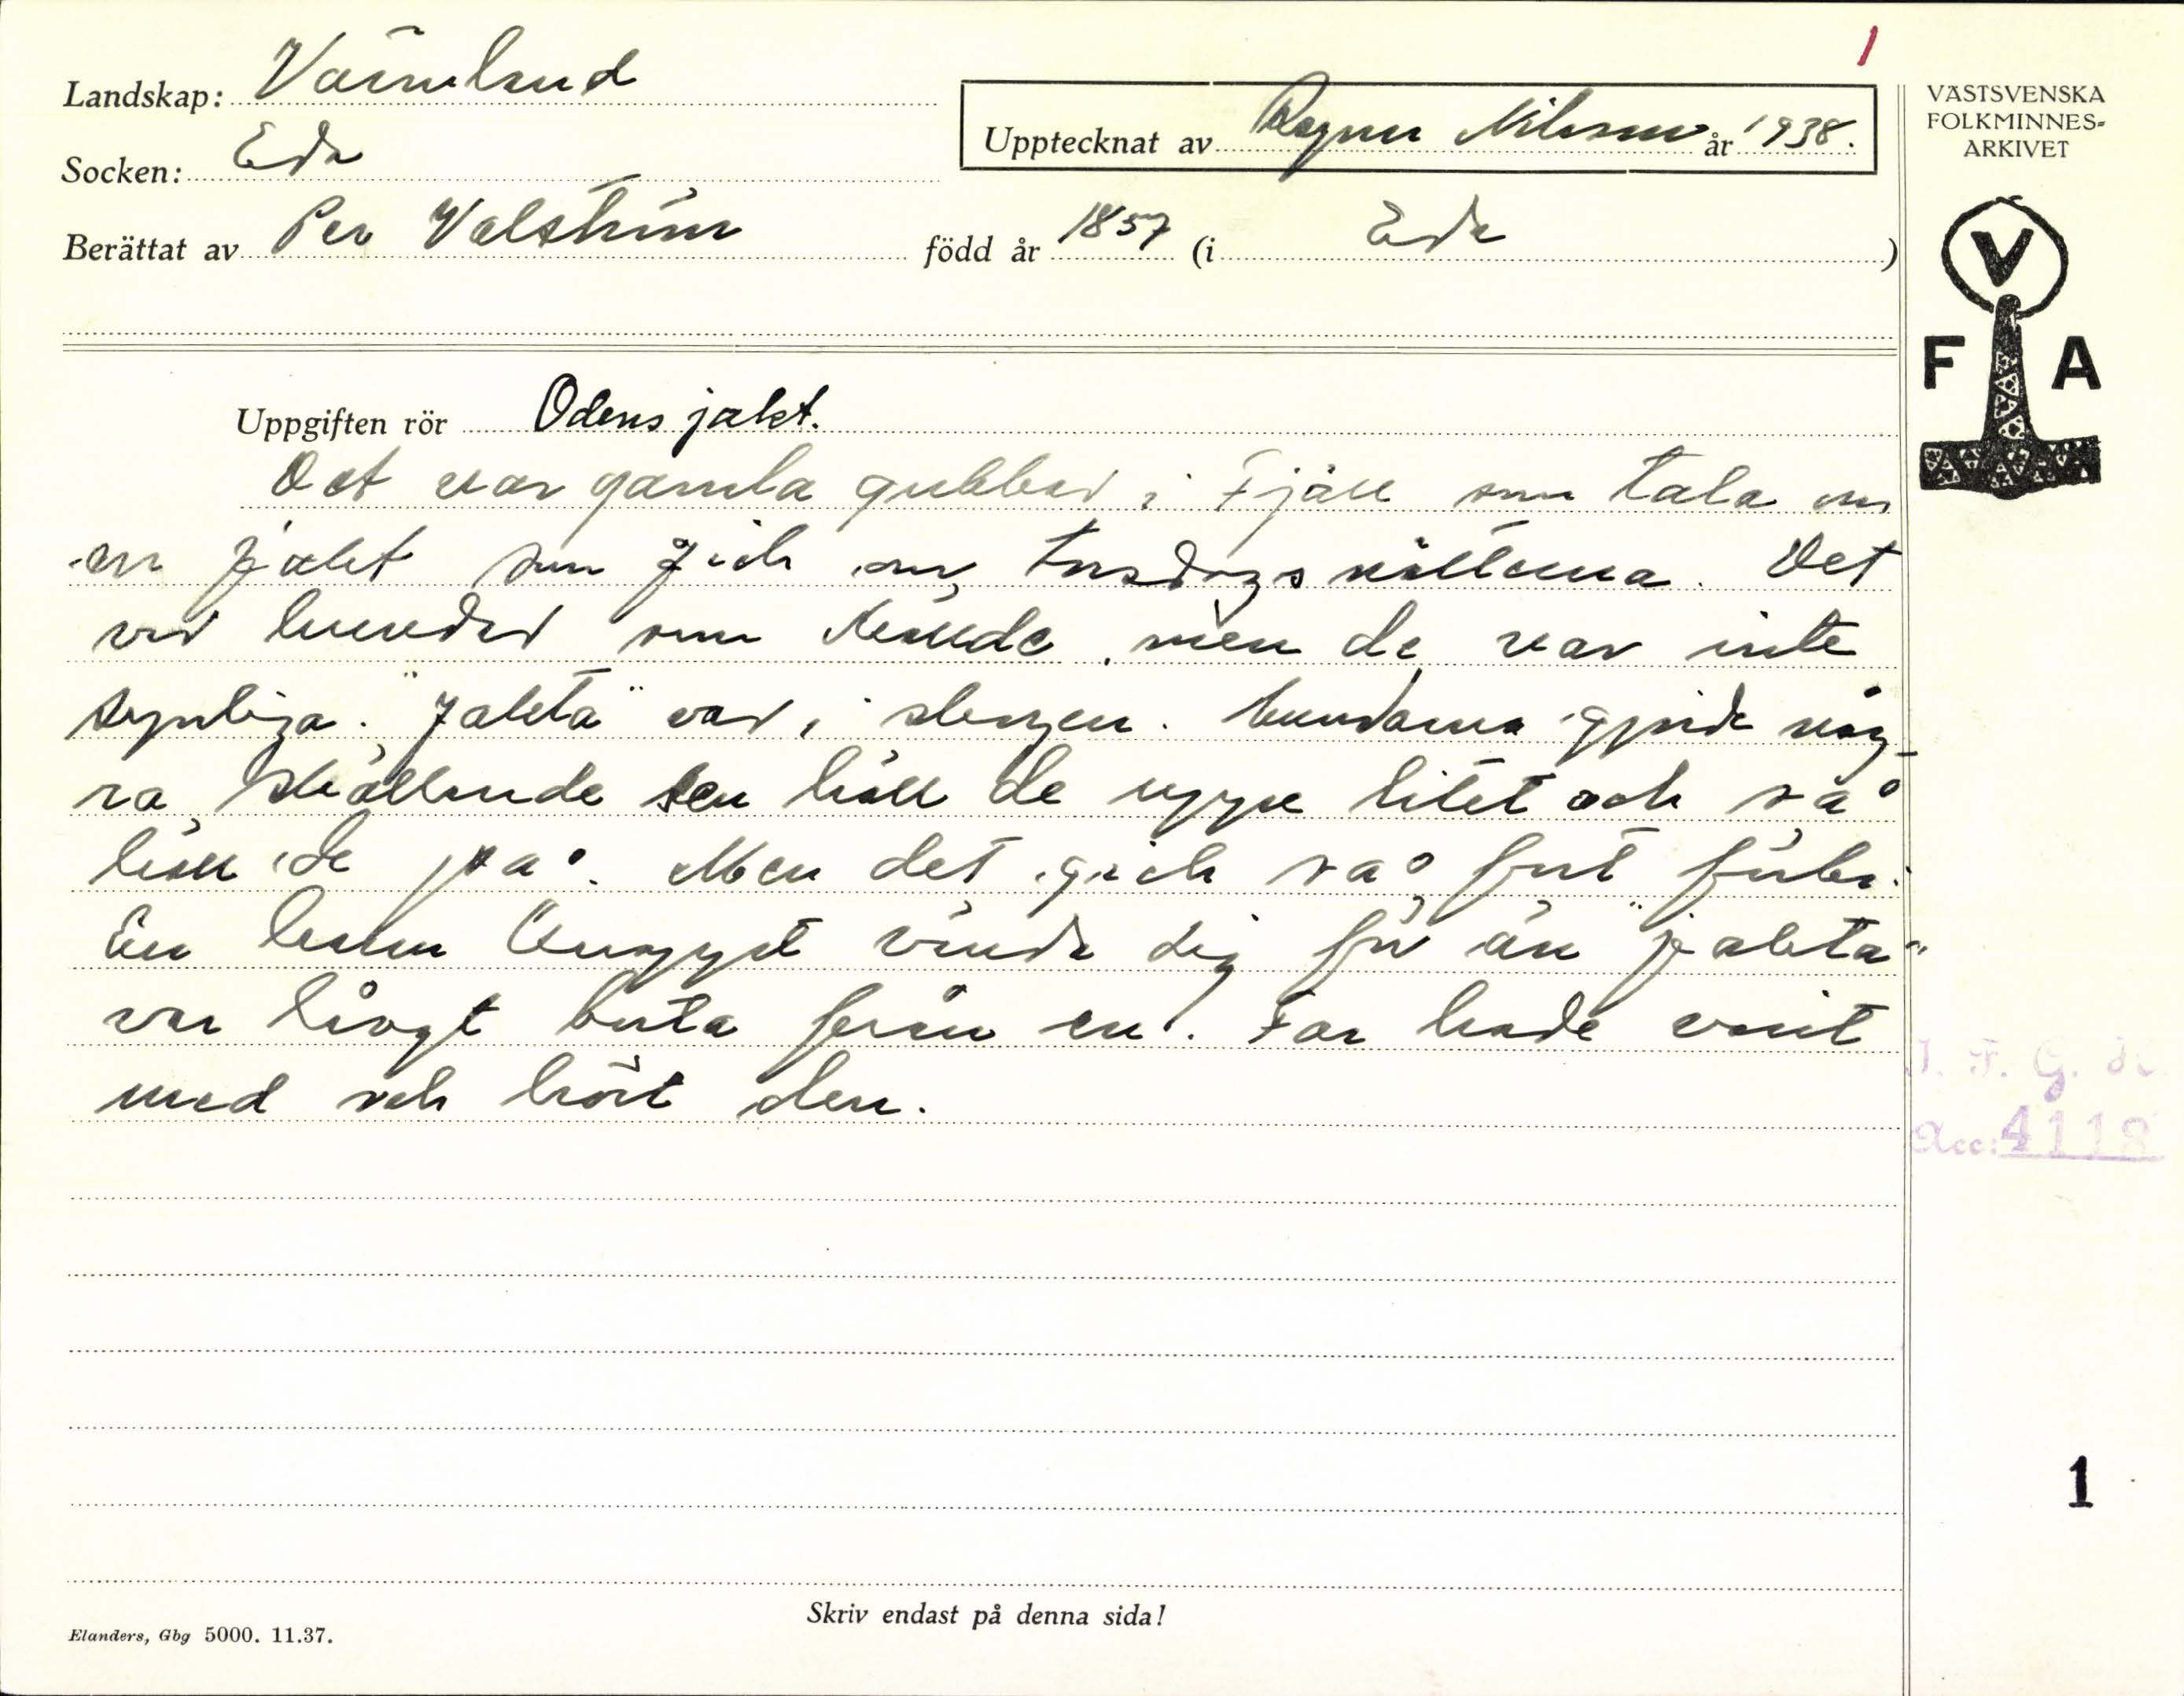 1
Landskap: Värmland
Upptecknat av Ragnar Nilsson år 1938.
VÄSTSVENSKA
FOLKMINNES-
ARKIVET
Socken: Eda
Berättat av Per Valström född år 1857 (i Eda )
V
F A
Uppgiften rör Odens jakt.
Det var gamla gubbar i Fjäll som tala om
en jakt som gick om torsdagsnätterna. Det
var hundar som skällde, men de var inte
synliga. "Jakta" var i skogen. Hundarna gjorde någ-
ra skällande sen höll de uppe litet och så
höll de på. Men det gick så fort förbi.
En hann knappt vända sig för än "jakta"
var långt borta från en. Far hade varit
med och hört den.
I. F. G. d.
Acc: 4118
1
Skriv endast på denna sida!
Elanders, Gbg 5000. 11.37.